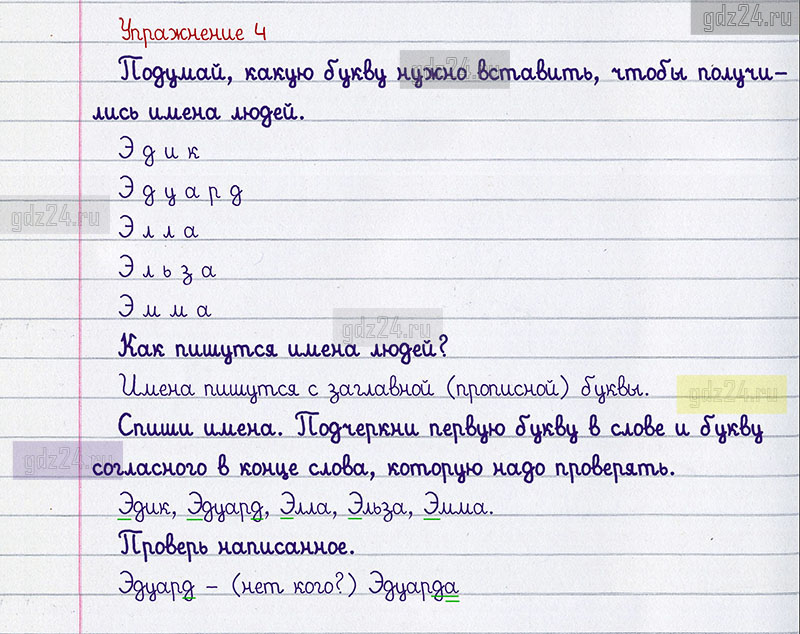 gdz24.ru
Упражнение 4
Подумай, какую букву нужно вставить, чтобы получи-
gdz24.ru
лись имена людей.
Э д и к
Э д у а р д
gdz24.ru
Э л л а
Э л ь з а
Э м м а
gdz24.ru
Как пишутся имена людей?
Имена пишутся с заглавной (прописной) буквы.
gdz24.ru
Спиши имена. Подчеркни первую букву в слове и букву
gdz24.ru
согласного в конце слова, которую надо проверять.
Эдик, Эдуард, Элла, Эльза, Эмма.
Проверь написанное.
Эдуард – (нет кого?) Эдуарда